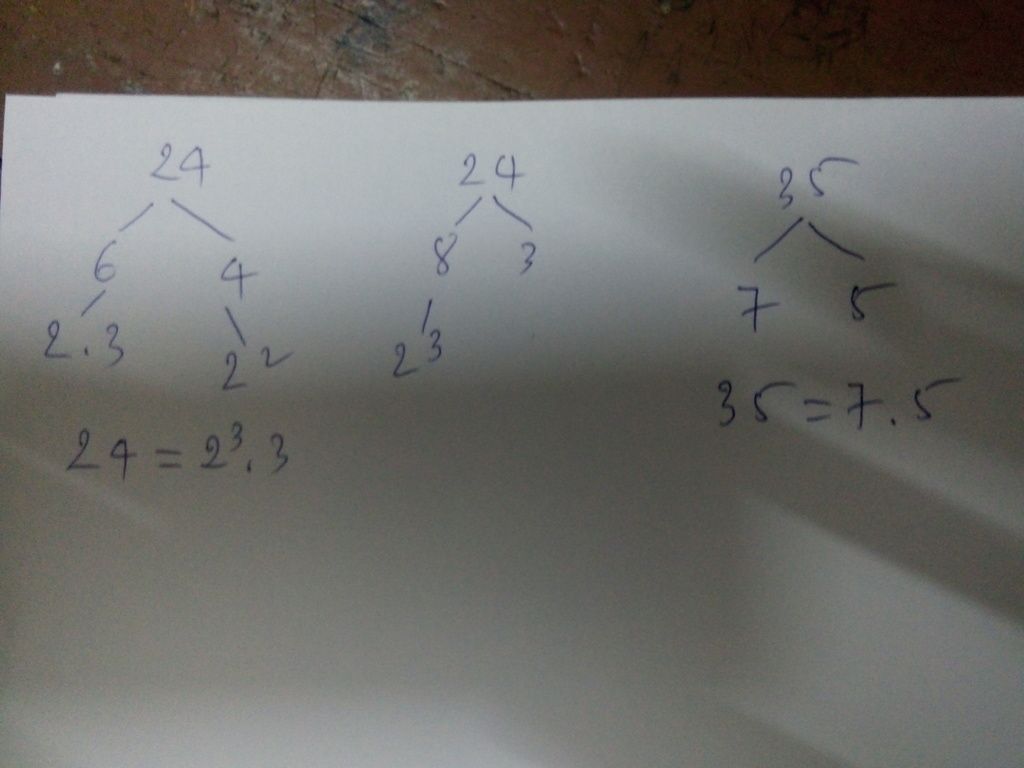 24
6 4
2.3 2²
24 = 2³.3
24
8 3
2³
35
7 5
35 = 7.5